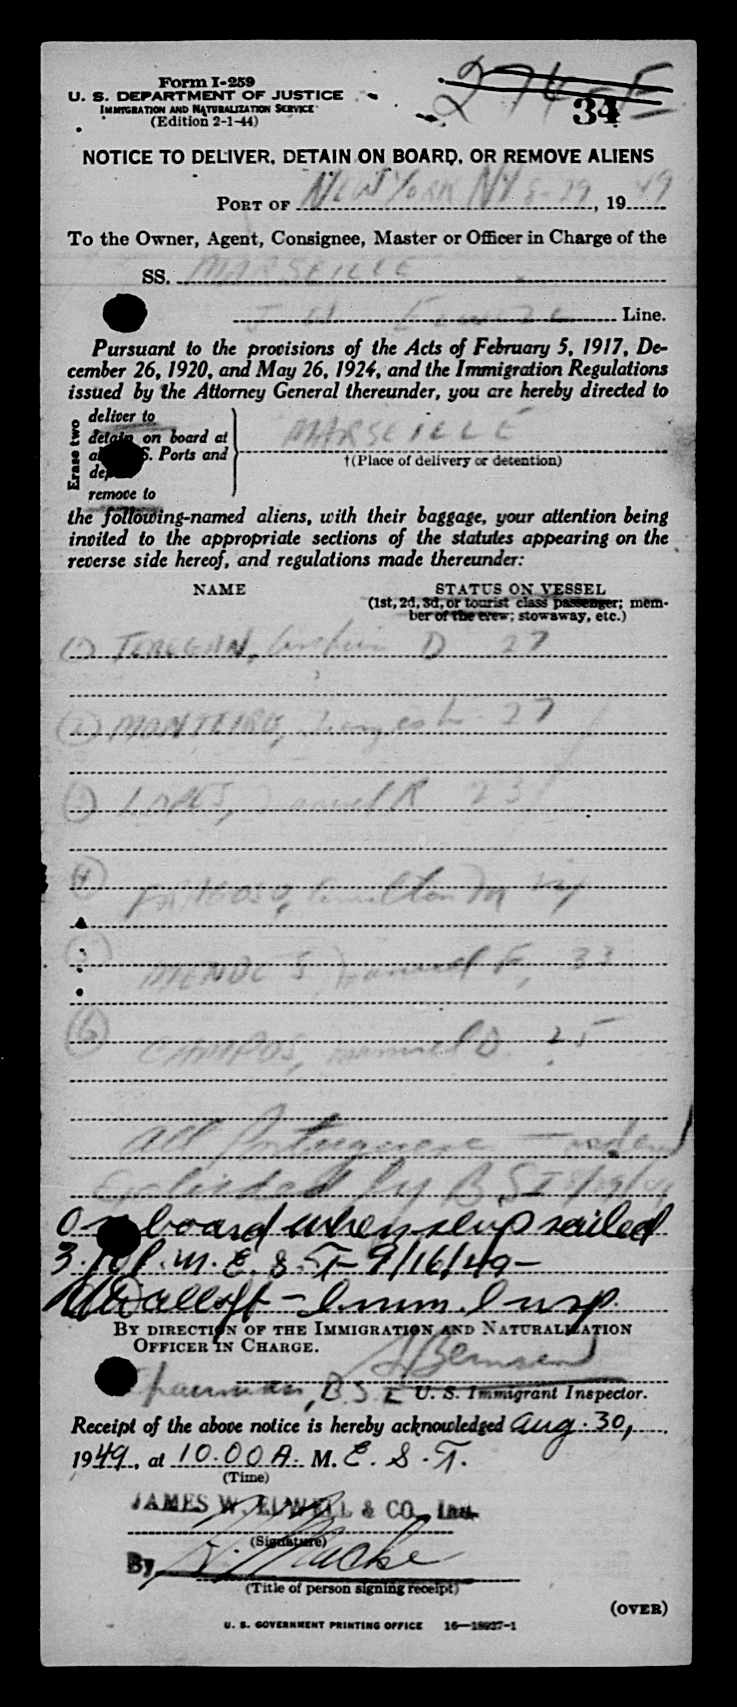 Form I-259
U. S. DEPARTMENT OF JUSTICE
IMMIGRATION AND NATURALIZATION SERVICE
(Edition 2-1-44)
274-E
34
NOTICE TO DELIVER, DETAIN ON BOARD, OR REMOVE ALIENS
PORT OF NEW YORK NY 8-29, 1949
To the Owner, Agent, Consignee, Master or Officer in Charge of the
SS. MARSEILLE
J W Elwell Line.
Pursuant to the provisions of the Acts of February 5, 1917, De-
cember 26, 1920, and May 26, 1924, and the Immigration Regulations
issued by the Attorney General thereunder, you are hereby directed to
Erase two
deliver to
detain on board at
S. Ports and
remove to
MARSEILLE
†(Place of delivery or detention)
the following-named aliens, with their baggage, your attention being
invited to the appropriate sections of the statutes appearing on the
reverse side hereof, and regulations made thereunder:
NAME STATUS ON VESSEL
(1st, 2d, 3d, or tourist class passenger; mem-
ber of the crew; stowaway, etc.)
(1) D 27
(2) MONTEIRO, 27
(3) LOPES, Manuel R 23
(4) M
(5) MENDES, Manuel F, 33
(6) CAMPOS, Manuel D. 25
All Portuguese
Excluded by BSI 8/29/49
On board when ship sailed
3. P. M. E. S. T- 9/16/49-
- Imm. Insp.
BY DIRECTION OF THE IMMIGRATION AND NATURALIZATION
OFFICER IN CHARGE.
Chairman, B.S.I. U. S. Immigrant Inspector.
Receipt of the above notice is hereby acknowledged Aug. 30,
1949, at 10:00 A. M. E. S. T.
(Time)
JAMES W. ELWELL & CO., Inc.
(Signature)
By
(Title of person signing receipt)
(OVER)
U. S. GOVERNMENT PRINTING OFFICE 16—18937-1